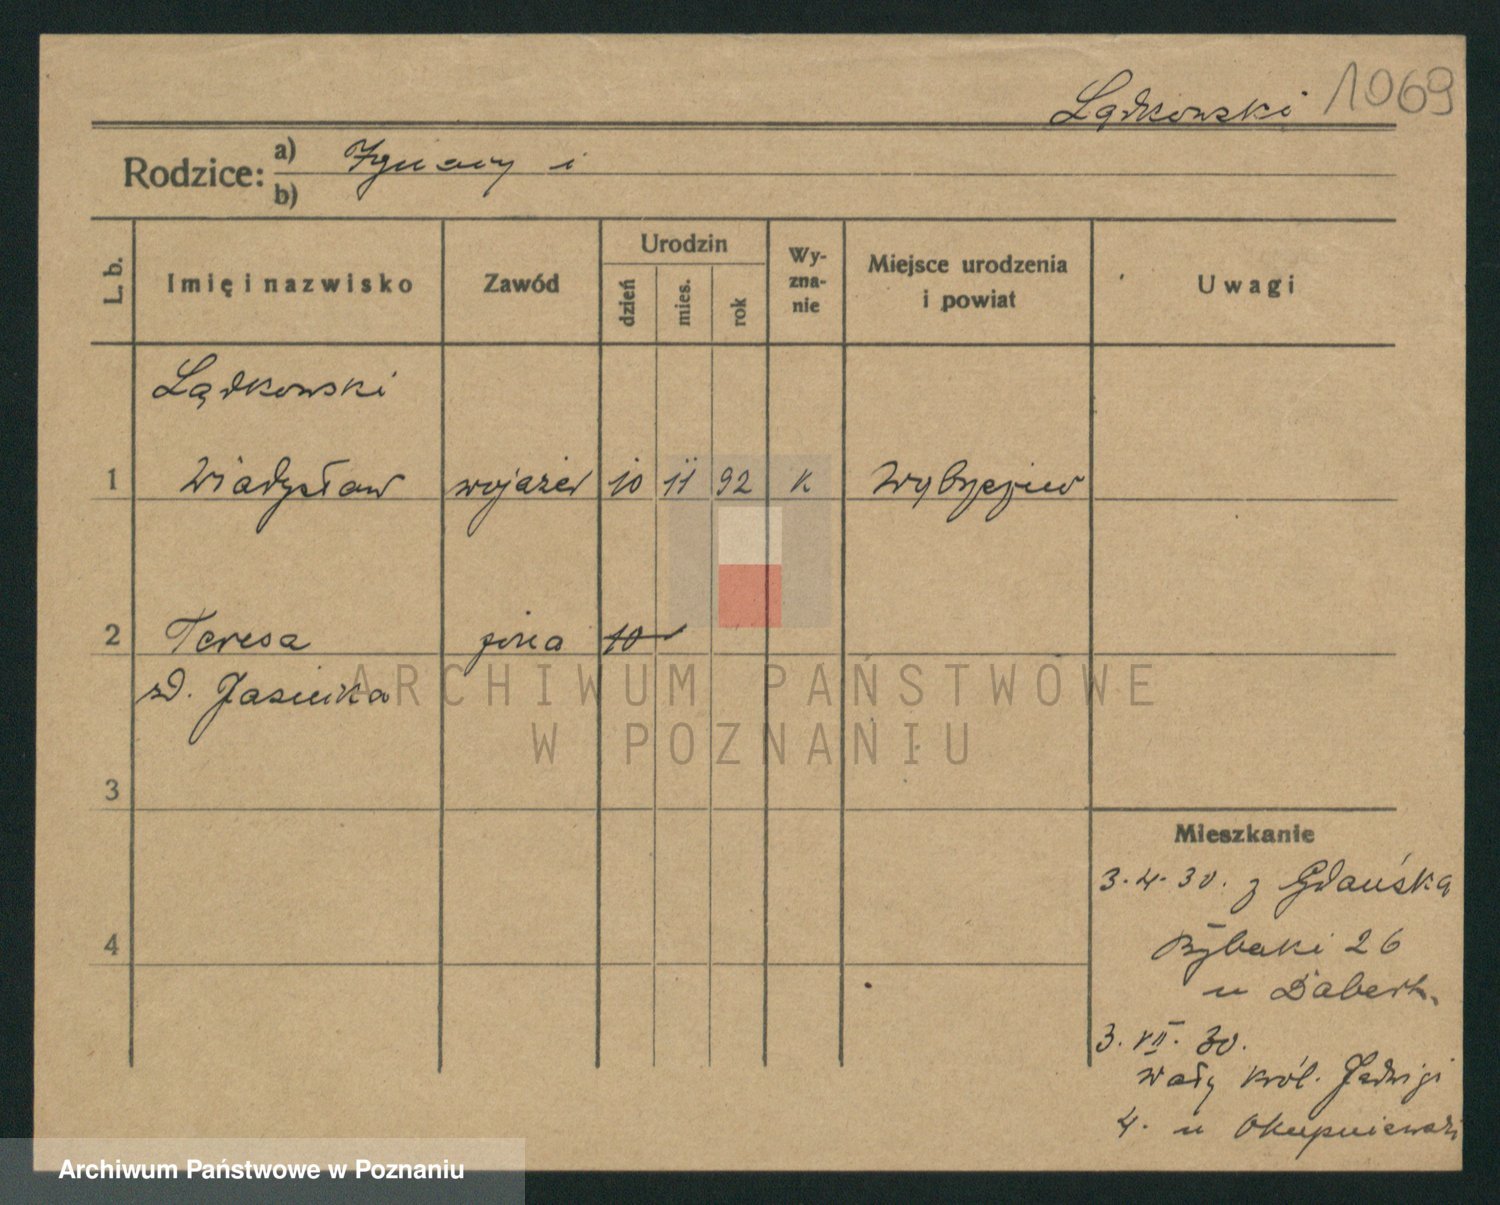 Lądkowski 1069
Rodzice: a) Ignacy i
b)
L. b. Imię i nazwisko Zawód Urodzin dzień mies. rok Wyznanie Miejsce urodzenia i powiat Uwagi
Lądkowski
1 Władysław wojażer 10 11 92 K
2 Teresa żona 10
zd. Jasińska
ARCHIWUM PAŃSTWOWE
W POZNANIU
3
Mieszkanie
3.4.30. z Gdańska
4 Rybaki 26
u Dabert.
3. VII. 30.
Wały Król. Jadwigi
4. u
Archiwum Państwowe w Poznaniu